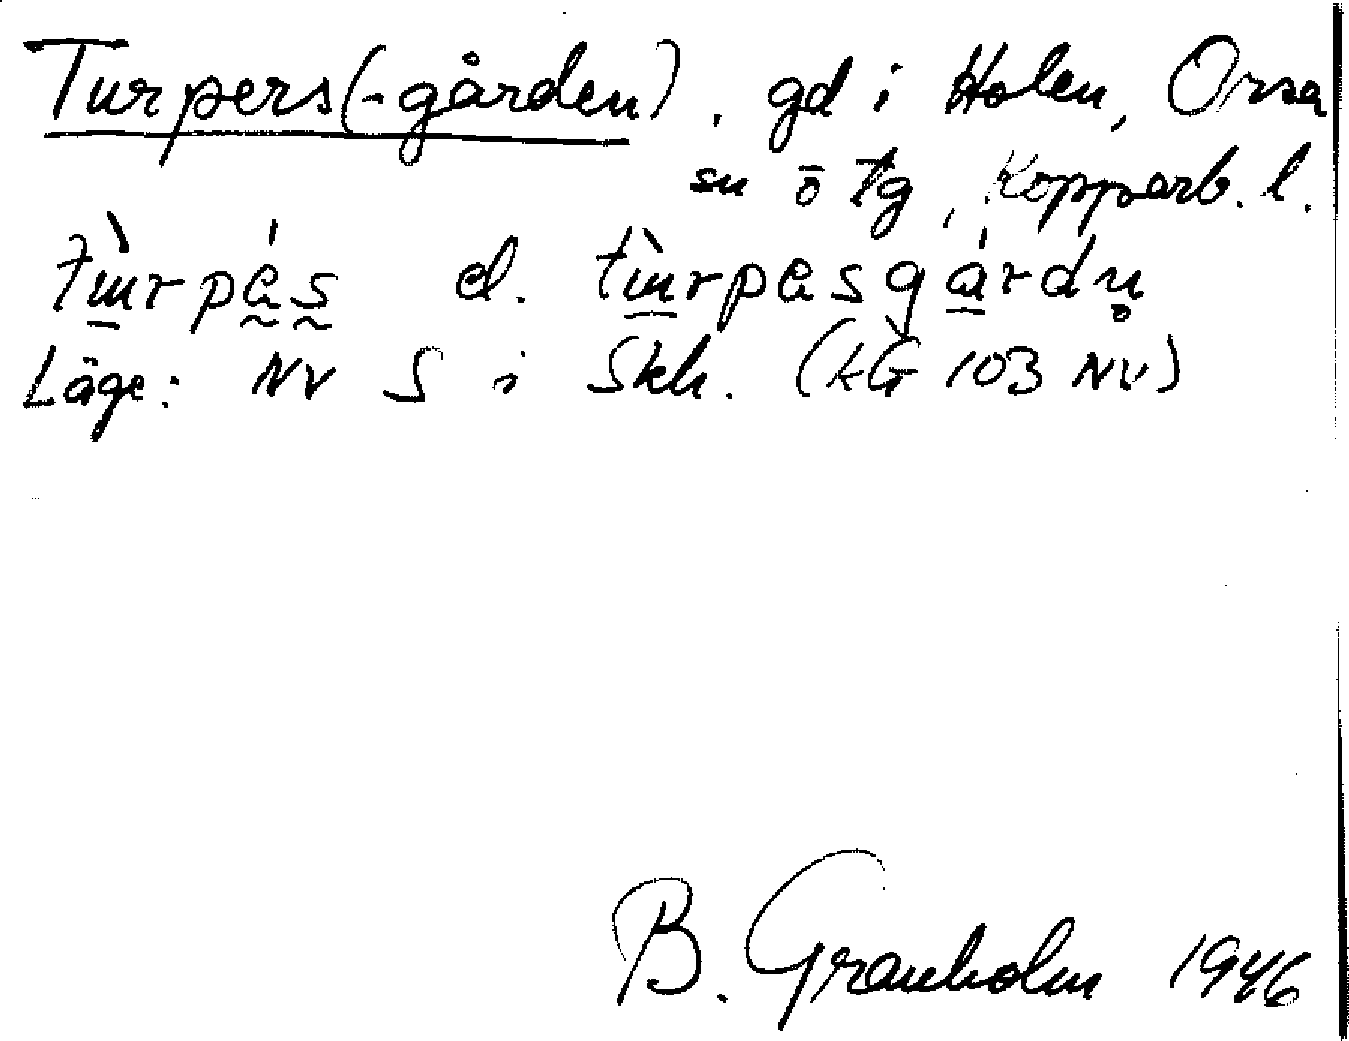 Turpers(-gården), gd i Holen, Orsa
sn ō tg, Kopparb. l.
tùrpás el. tùrpasgárdn̥
Läge: NV S i Skh. (kG 103 NV)
B. Granholm 1946